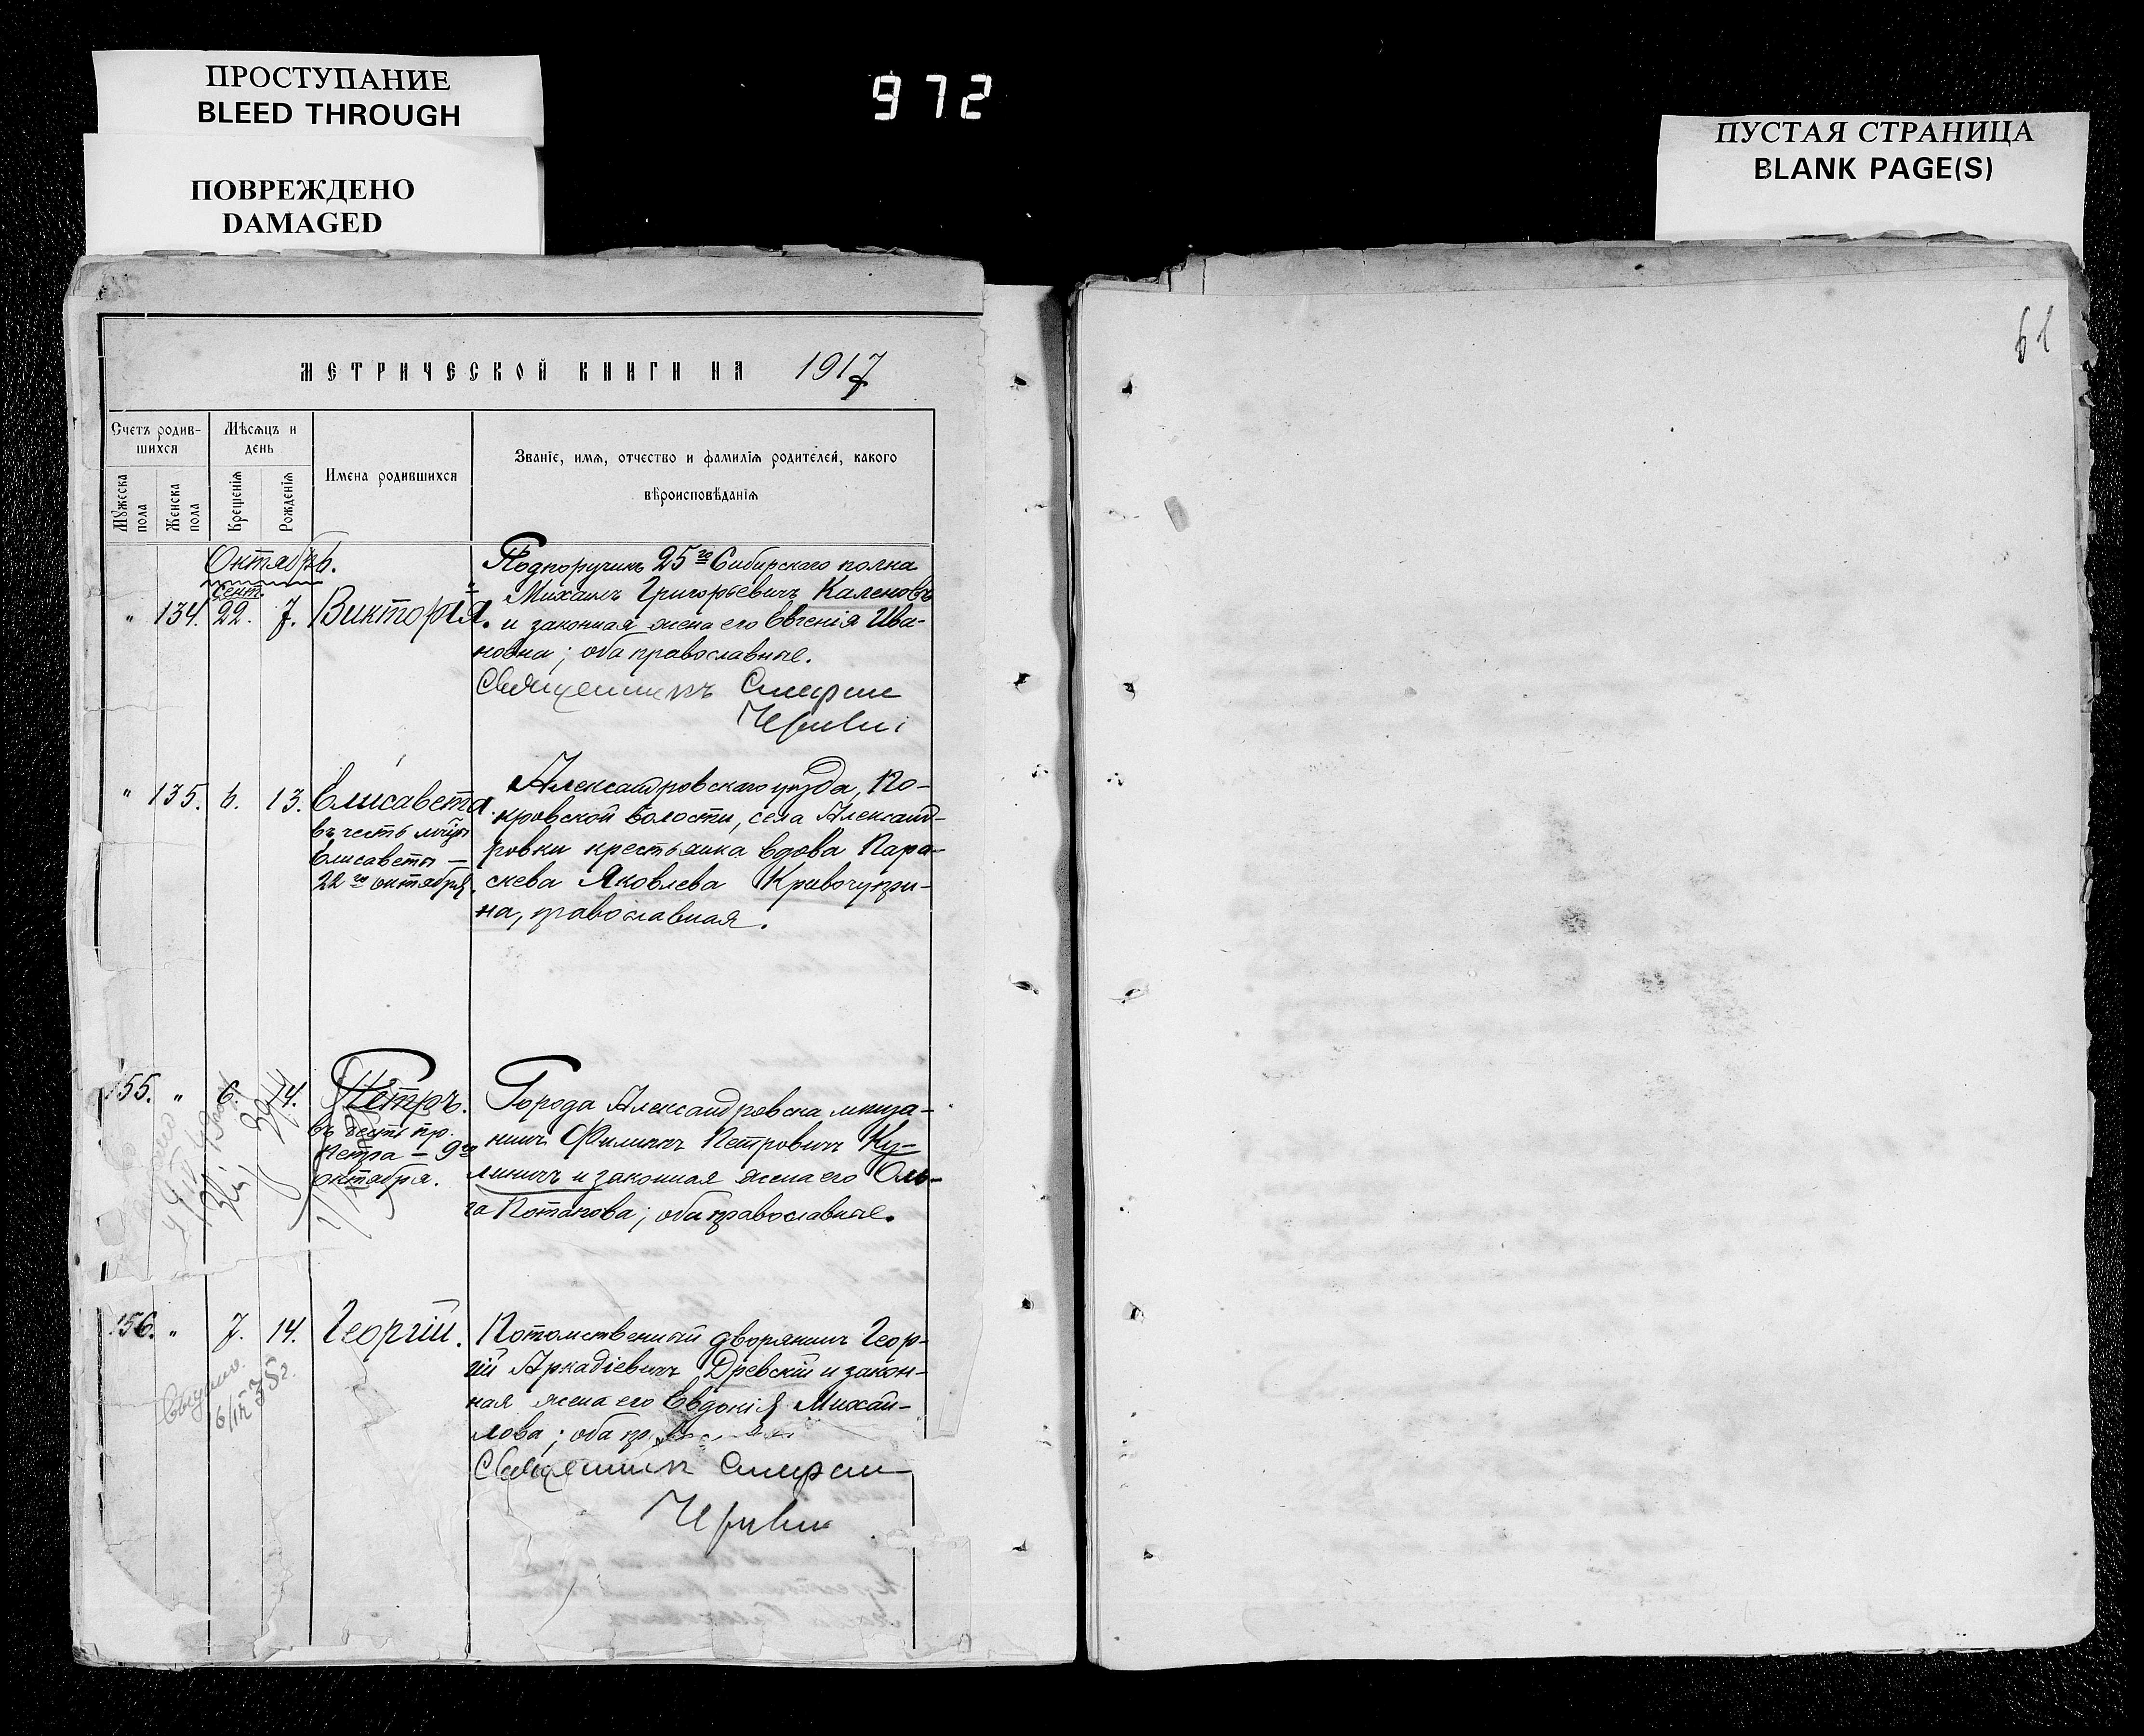 ПРОСТУПАНИЕ
BLEED THROUGH
ПОВРЕЖДЕНО
DAMAGED
972
ПУСТАЯ СТРАНИЦА
BLANK PAGE(S)
61
МЕТРИЧЕСКОЙ КНИГИ НА 1917
Счетъ родив-
шихся
Мѣсяцъ и
день
Имена родившихся
Званіе, имя, отчество и фамилія родителей, какого
вѣроисповѣданія
Мужеска
пола
Женска
пола
Крещенія
Рожденія
Октябрь.
Сент.
" 134. 22. 7. Викторія.
Подпоручикъ 25го Сибирскаго полка
Михаилъ Григорьевичъ Каленовъ
и законная жена его Евгенія Ива-
новна; оба православные.
Священникъ
" 135. 6. 13. Елисавета
въ честь мчцы
Елисаветы —
22го октября.
Александровскаго уѣзда, По-
кровской волости, села Александ-
ровки крестьянка вдова Пара-
скева Яковлева
на, православная.
155. " 6. 14. Петръ.
въ честь пр.
Петра — 9го
октября.
Города Александровска мѣща-
нинъ Филиппъ Петровичъ Ку-
линичъ и законная жена его Оль-
га Потапова; оба православные.
156. " 7. 14. Георгій.
Потомственный дворянинъ Геор-
гій Аркадіевичъ Древскій и закон-
ная жена его Евдокія Михай-
лова; оба
Священникъ